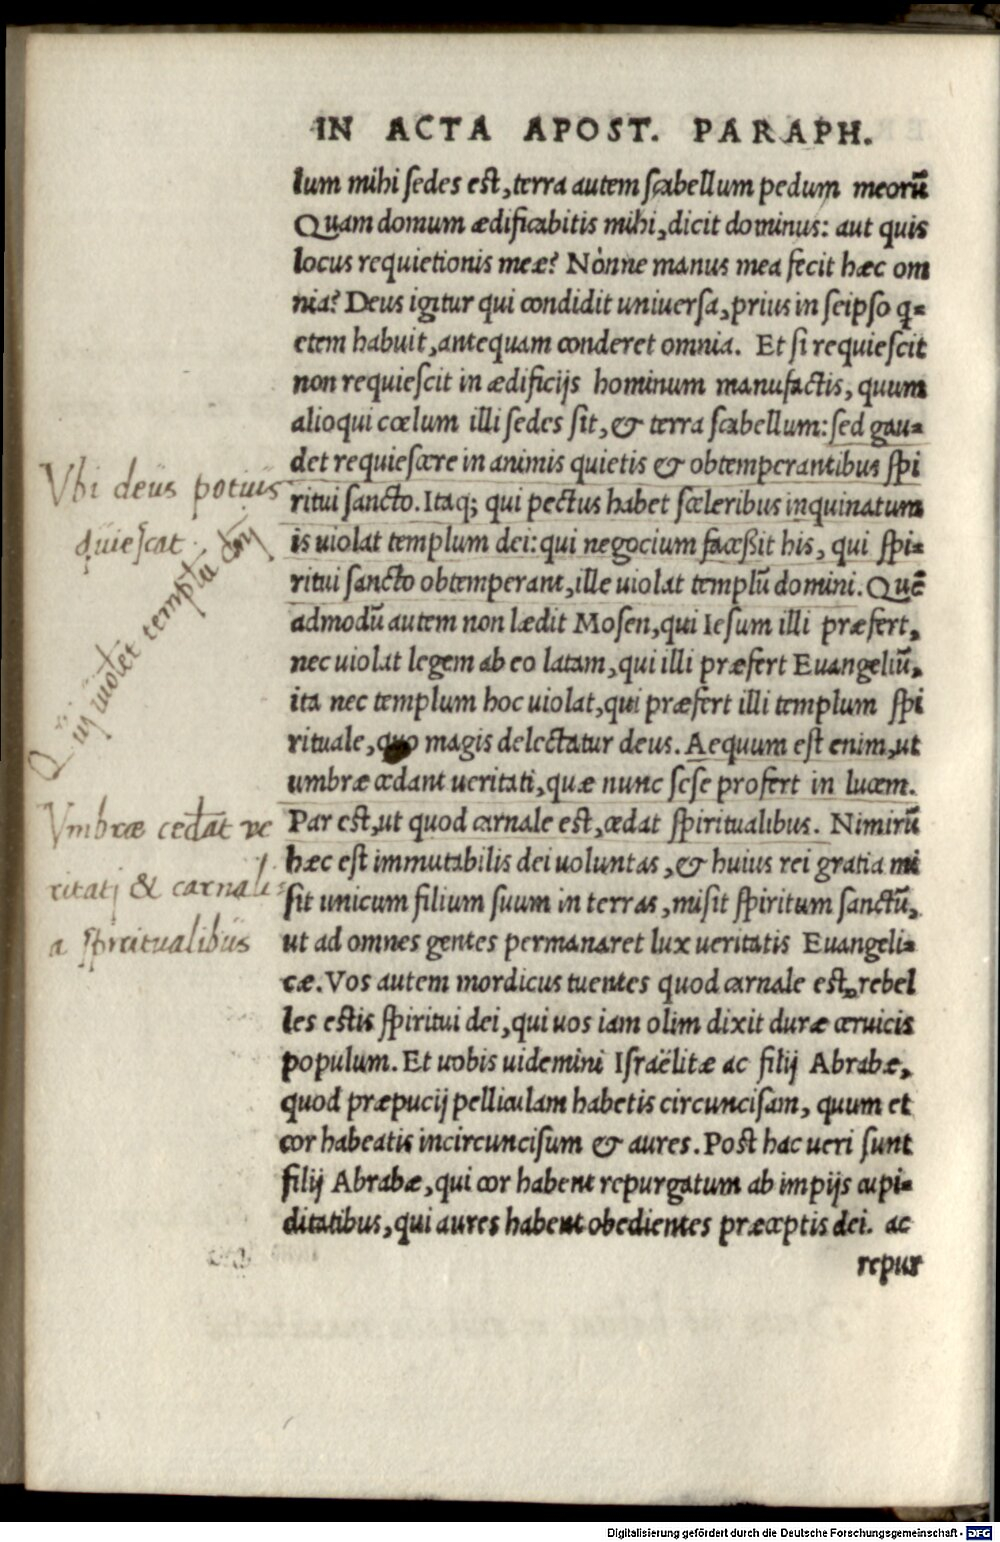 IN ACTA APOST. PARAPH.
lum mihi sedes est, terra autem scabellum pedum meorū
Quam domum ædificabitis mihi, dicit dominus: aut quis
locus requietionis meæ? Nónne manus mea fecit hæc om
nia? Deus igitur qui condidit uniuersa, prius in seipso q-
etem habuit, antequam conderet omnia. Et si requiescit
non requiescit in ædificijs hominum manufactis, quum
alioqui cœlum illi sedes sit, & terra scabellum: sed gau-
det requiescere in animis quietis & obtemperantibus spi
ritui sancto. Itaq; qui pectus habet sceleribus inquinatum
is uiolat templum dei: qui negocium facessit his, qui spi-
ritui sancto obtemperant, ille uiolat templū domini. Quē
admodū autem non lædit Mosen, qui Iesum illi præfert,
nec uiolat legem ab eo latam, qui illi præfert Euangeliū,
ita nec templum hoc uiolat, qui præfert illi templum spi
rituale, quo magis delectatur deus. Aequum est enim, ut
umbræ cedant ueritati, quæ nunc sese profert in lucem.
Par est, ut quod carnale est, cedat spiritualibus. Nimirū
hæc est immutabilis dei uoluntas, & huius rei gratia mi
sit unicum filium suum in terras, misit spiritum sanctū,
ut ad omnes gentes permanaret lux ueritatis Euangeli-
cæ. Vos autem mordicus tuentes quod carnale est, rebel
les estis spiritui dei, qui uos iam olim dixit duræ ceruicis
populum. Et uobis uidemini Israëlitæ ac filij Abrahæ,
quod præpucij pelliculam habetis circuncisam, quum et
cor habeatis incircuncisum & aures. Post hac ueri sunt
filij Abrahæ, qui cor habent repurgatum ab impijs cupi-
ditatibus, qui aures habent obedientes præceptis dei. ac
repur
Vbi deus potius
quiescat.
uiolet templū
Vmbræ cedāt ve
ritati & carnali-
a spiritualibus
Digitalisierung gefördert durch die Deutsche Forschungsgemeinschaft - DFG